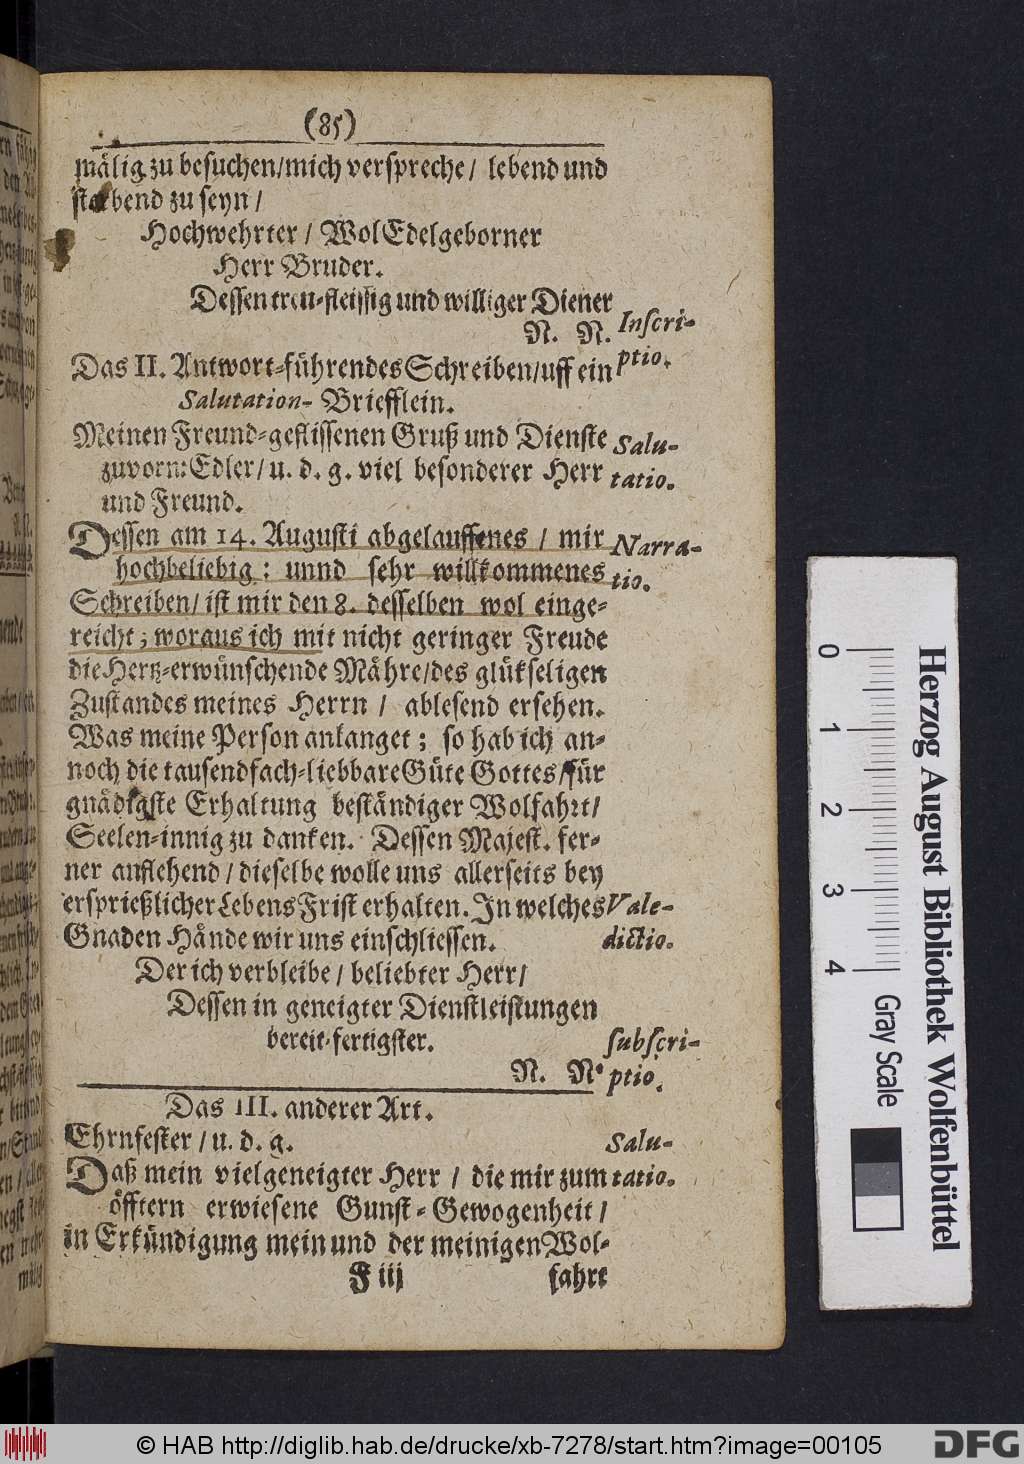 (85)
mälig zu besuchen/mich verspreche/ lebend und
sterbend zu seyn/
Hochwehrter/ WolEdelgeborner
Herr Bruder.
Dessen treu-fleissig und williger Diener
N. N.
Inscri-
ptio.
Das II. Antwort-führendes Schreiben/uff ein
Salutation- Briefflein.
Meinen Freund-geflissenen Gruß und Dienste
Salu-
zuvorn: Edler/ u. d. g. viel besonderer Herr
tatio.
und Freund.
Dessen am 14. Augusti abgelauffenes / mir
Narra-
hochbeliebig: unnd sehr willkommenes
tio.
Schreiben/ ist mir den 8. desselben wol einge-
reicht; woraus ich mit nicht geringer Freude
die Hertz-erwünschende Mähre/des glükseligen
Zustandes meines Herrn / ablesend ersehen.
Was meine Person anlanget; so hab ich an-
noch die tausendfach-liebbare Güte Gottes/für
gnädigste Erhaltung beständiger Wolfahrt/
Seelen-innig zu danken. Dessen Majest. fer-
ner anflehend/dieselbe wolle uns allerseits bey
ersprießlicher Lebens Frist erhalten. In welches
Vale-
Gnaden Hände wir uns einschliessen.
dictio.
Der ich verbleibe/ beliebter Herr/
Dessen in geneigter Dienstleistungen
bereit-fertigster.
subscri-
N. N.
ptio.
Das III. anderer Art.
Ehrnfester/u. d. g.
Salu-
Daß mein vielgeneigter Herr / die mir zum
tatio.
öfftern erwiesene Gunst-Gewogenheit/
in Erkündigung mein und der meinigen Wol-
F iij
fahrt
0 1 2 3 4
Gray Scale
Herzog August Bibliothek Wolfenbüttel
© HAB http://diglib.hab.de/drucke/xb-7278/start.htm?image=00105
DFG